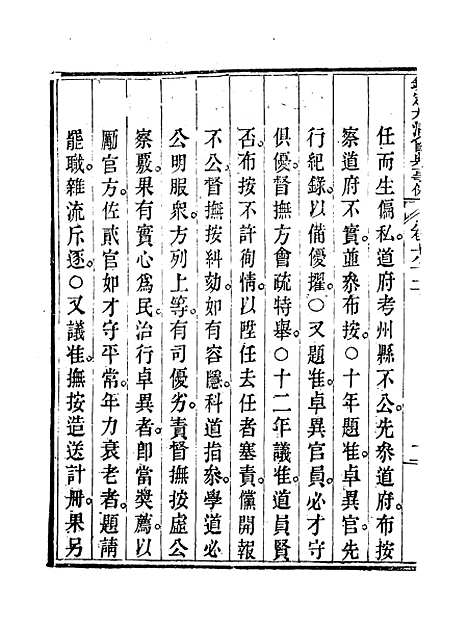 任而生偏私。道府考州縣不公。先叅道府。布按
察道府不實。並叅布按。○十年題准。卓異官先
行紀錄。以備優擢。○又題准。卓異官員。必才守
俱優。督撫方會疏特舉。○十二年議准。道員賢
否。布按不許徇情。以陞任去任者塞責。儻開報
不公。督撫按糾劾。如有容隱。科道指叅。學道必
公明服衆。方列上等。有司優劣。責督撫按虛公
察覈。果有實心爲民。治行卓異者。卽當奬薦。以
勵官方。佐貳官如才守平常。年力衰老者。題請
罷職。雜流斥逐。○又議准。撫按造送計冊。果另